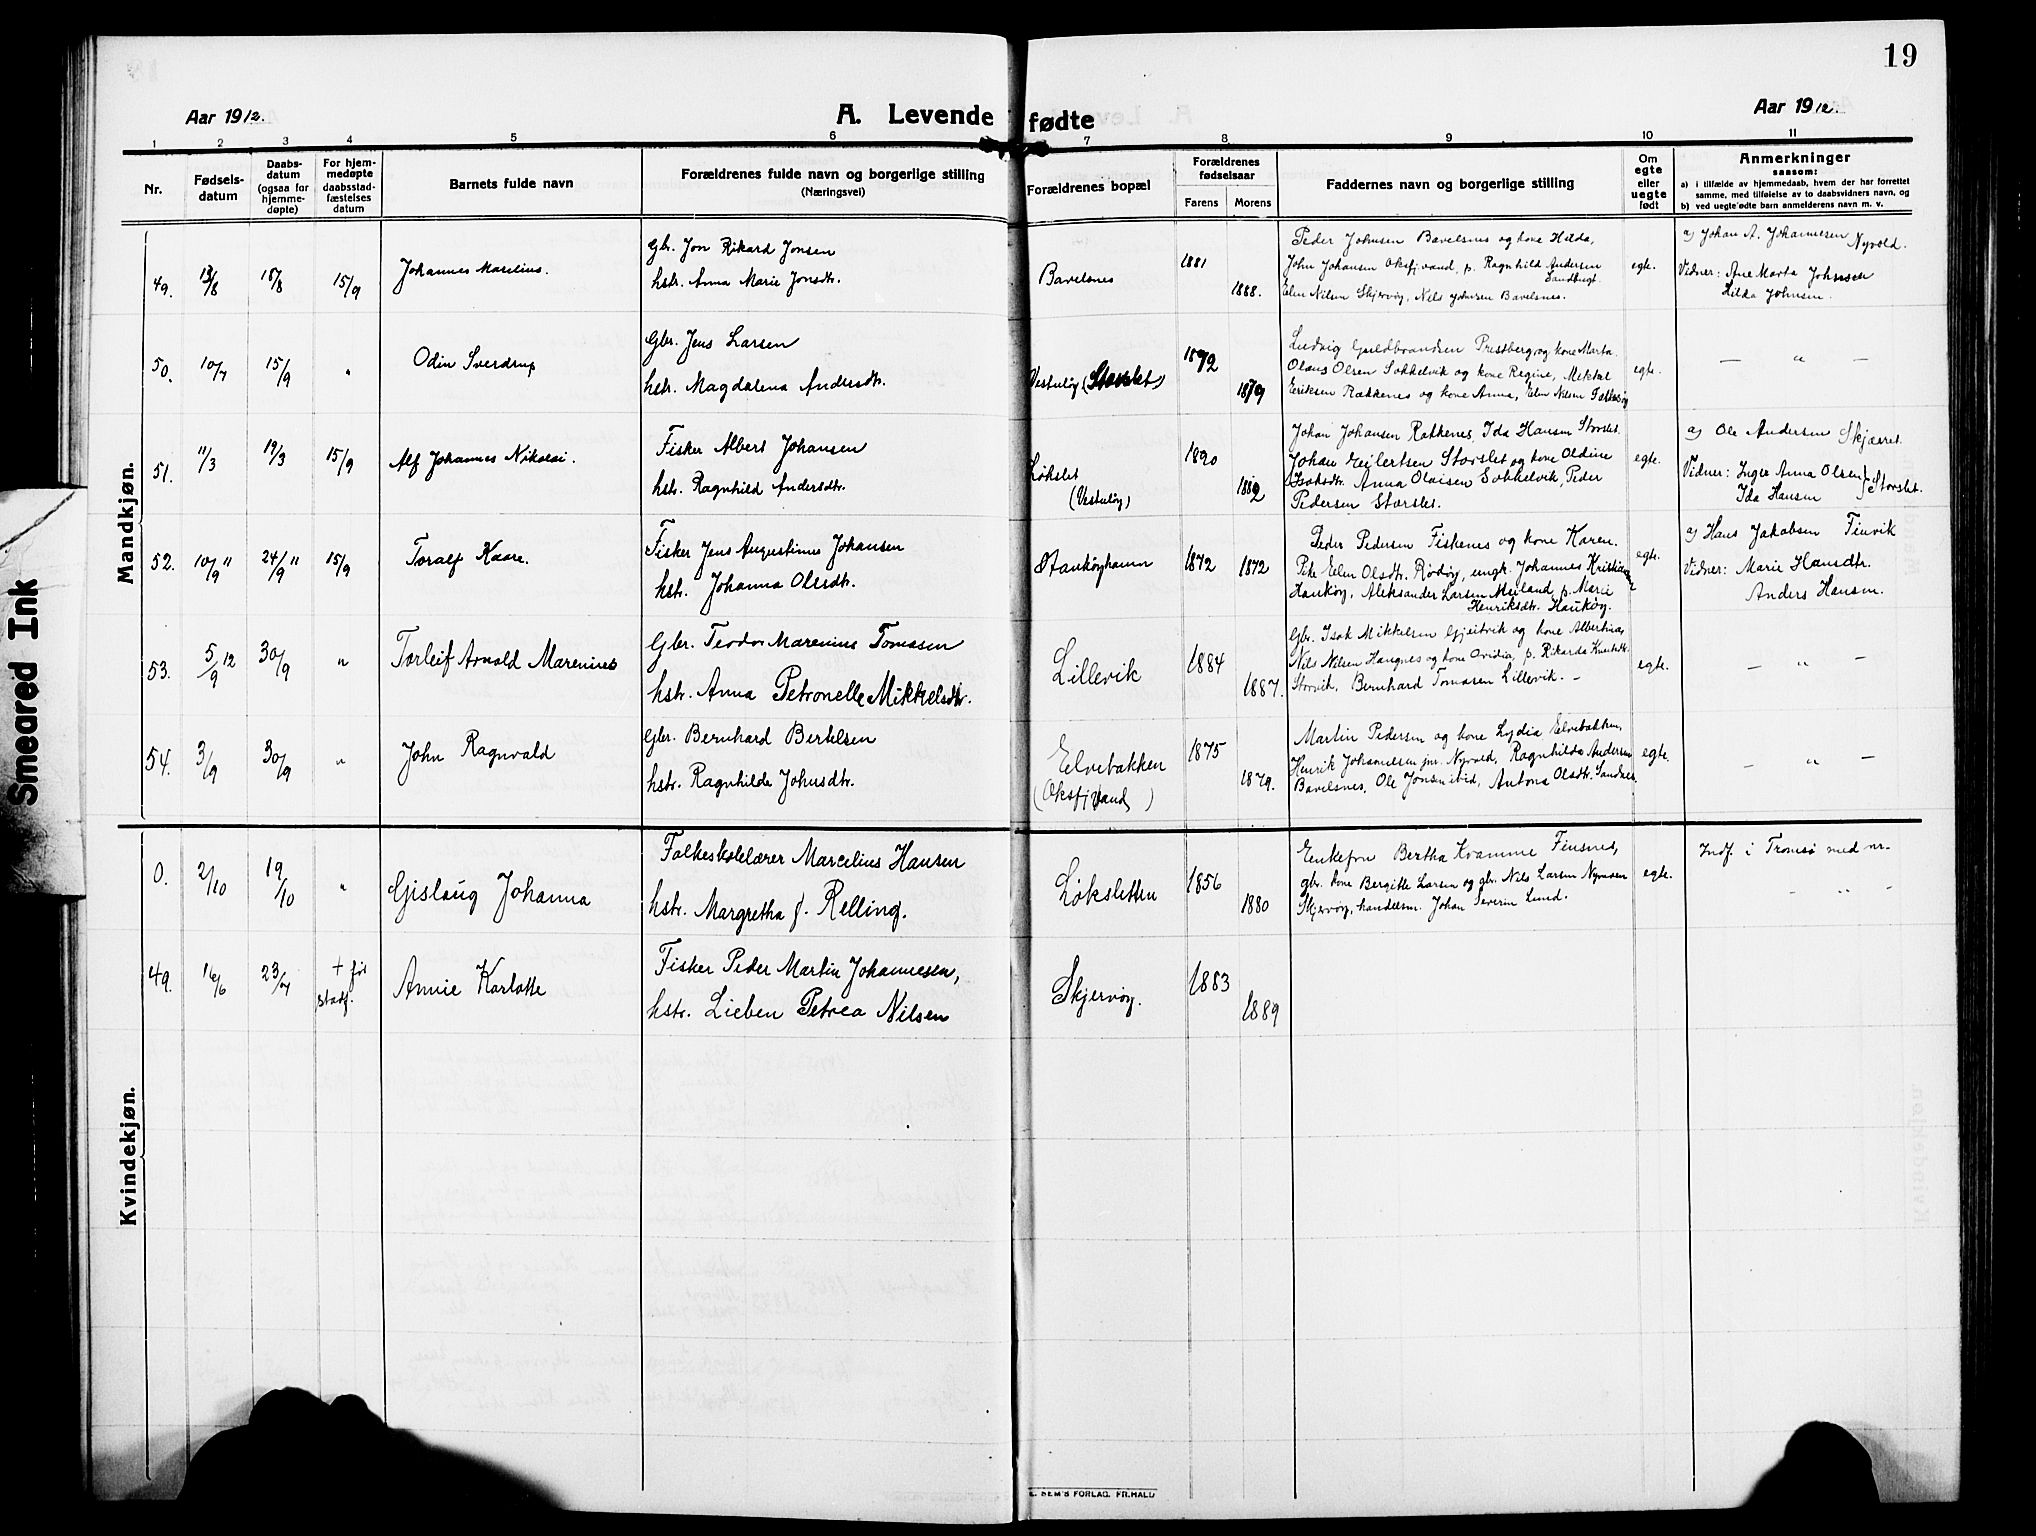 19
Aar 1912.
A. Levende fødte
Aar 1912.
1 2 3 4 5 6 7 8 9 10 11
Nr.
Fødsels-
datum
Daabs-
datum
(ogsaa for
hjemme-
døpte)
For hjem-
medøpte
daabsstad-
fæstelses
datum
Barnets fulde navn
Forældrenes fulde navn og borgerlige stilling
(Næringsvei)
Forældrenes bopæl
Forældrenes
fødselsaar
Farens Morens
Faddernes navn og borgerlige stilling
Om
egte
eller
uegte
født
Anmerkninger
saasom:
a) i tilfælde av hjemmedaab, hvem der har forrettet
samme, med tilføielse av to daabsvidners navn, og
b) ved uegte fødte barn anmelderens navn m. v.
Mandkjøn.
49. 13/8 18/8 15/9 Johannes Marelius.
Gbr. Jon Rikard Jonsen
hstr. Anna Marie Jonsdtr.
Bavelsnes
1881
1888.
Peder Johnsen Bavelsnes og kone Hilda,
John Johansen Oksfjvand, p. Ragnhild Andersen
Sandbugt.
Elen Nilsen Skjervøy, Nils Johnsen Bavelsnes.
egte.
a) Johan A. Johannesen Nyvold.
Vidner: Ane Marta Johnsen
Hilda Johnsen.
50. 10/7 15/9 " Odin Sverdrup
Gbr. Jens Larsen
hstr. Magdalena Andersdtr.
Vestuløy (Storslet)
1872
1879
Ludvig Guldbrandsen Prestberg og kone Marta
Olaus Olsen Sokkelvik og kone Regine, Mikkal
Eriksen Rakkenes og kone Anna, Elen Nilsen
egte.
— " —
51. 11/3 19/3 15/9 Alf Johannes Nikolai.
Fisker Albert Johansen
hstr. Ragnhild Andersdtr.
Løkslet
(Vestuløy)
1890
1892
Johan Johansen Rakkenes, Ida Hansen Storslet.
Johan Eilertsen Storslet og kone Oldine
Isaksdtr. Anna Olaisen Sokkelvik, Peder
Pedersen Storslet.
egte.
a) Ole Andersen Skjæret.
Vidner: Inger Anna Olsen
Ida Hansen } Storslet.
52. 10/9 " 24/9 " 15/9 Toralf Kaare.
Fisker Jens Augustinus Johansen
hstr. Johanna Olesdtr.
Haukøyhamn
1872 1872
Peder Pedersen Fiskenes og kone Karen.
Pike Elen Olsdtr. Rødøy, ungk. Johannes Kristiansen
Haukøy, Aleksander Larsen Meiland, p. Marie
Henriksdtr. Haukøy.
egte.
a) Hans Jakobsen Finvik
Vidner: Marie Hansdtr.
Anders Hansen.
53. 5/9 12 30/9 " Torleif Arnold Marenius
Gbr. Teodor Marenius Tomassen
hstr. Anna Petronelle Mikkelsdtr.
Lillevik
1884
1887.
Gbr. Isak Mikkelsen Gjeitvik og kone Albertina,
Nils Nilsen Hangnes og kone Ovidia, p. Rikarda
Storvik, Bernhard Tomasen Lillevik. –
egte.
— " —
54. 3/9 30/9 " John Ragnvald
Gbr. Bernhard Bertelsen
hstr. Ragnhilde Johnsdtr.
Elvebakken
(Oksfjvand)
1875
1879.
Martin Pedersen og kone Lydia Elvebakken,
Henrik Johannesen jnr. Nyvold, Ragnhilda Andersen
Bavelsnes, Ole Jonsen ibid, Antona Olsdtr. Sandnes.
egte.
— " —
Kvindekjøn.
0. 2/10 19/10 " Gislaug Johanna
Folkeskolelærer Marcelius Hansen
hstr. Margretha f. Relling.
Løksletten
1856
1880
Enkefru Bertha Kvamme Finsnes,
gbr. kone Bergitte Larsen og gbr. Nils Larsen
Skjervøy, handelsm. Johan Severin Lund.
egte.
Indf. i Tromsø med nr-
- " -
49. 16/6 23/7 + før
stadf.
Annie Karlotte
Fisker Peder Martin Johannesen,
hstr. Lieben Petrea Nilsen
Skjervøy.
1883
1889
E. SEM'S FORLAG. FR.HALD
Smeared Ink